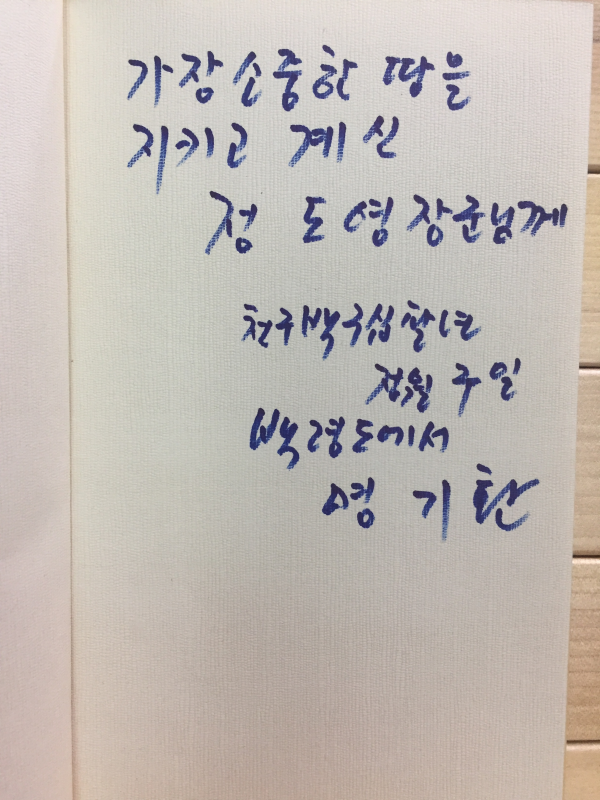 가장 소중한 땅을
지키고 계신
정 도 영 장군님께
천구백구십팔년
정월 구일
백령도에서
명 기 환